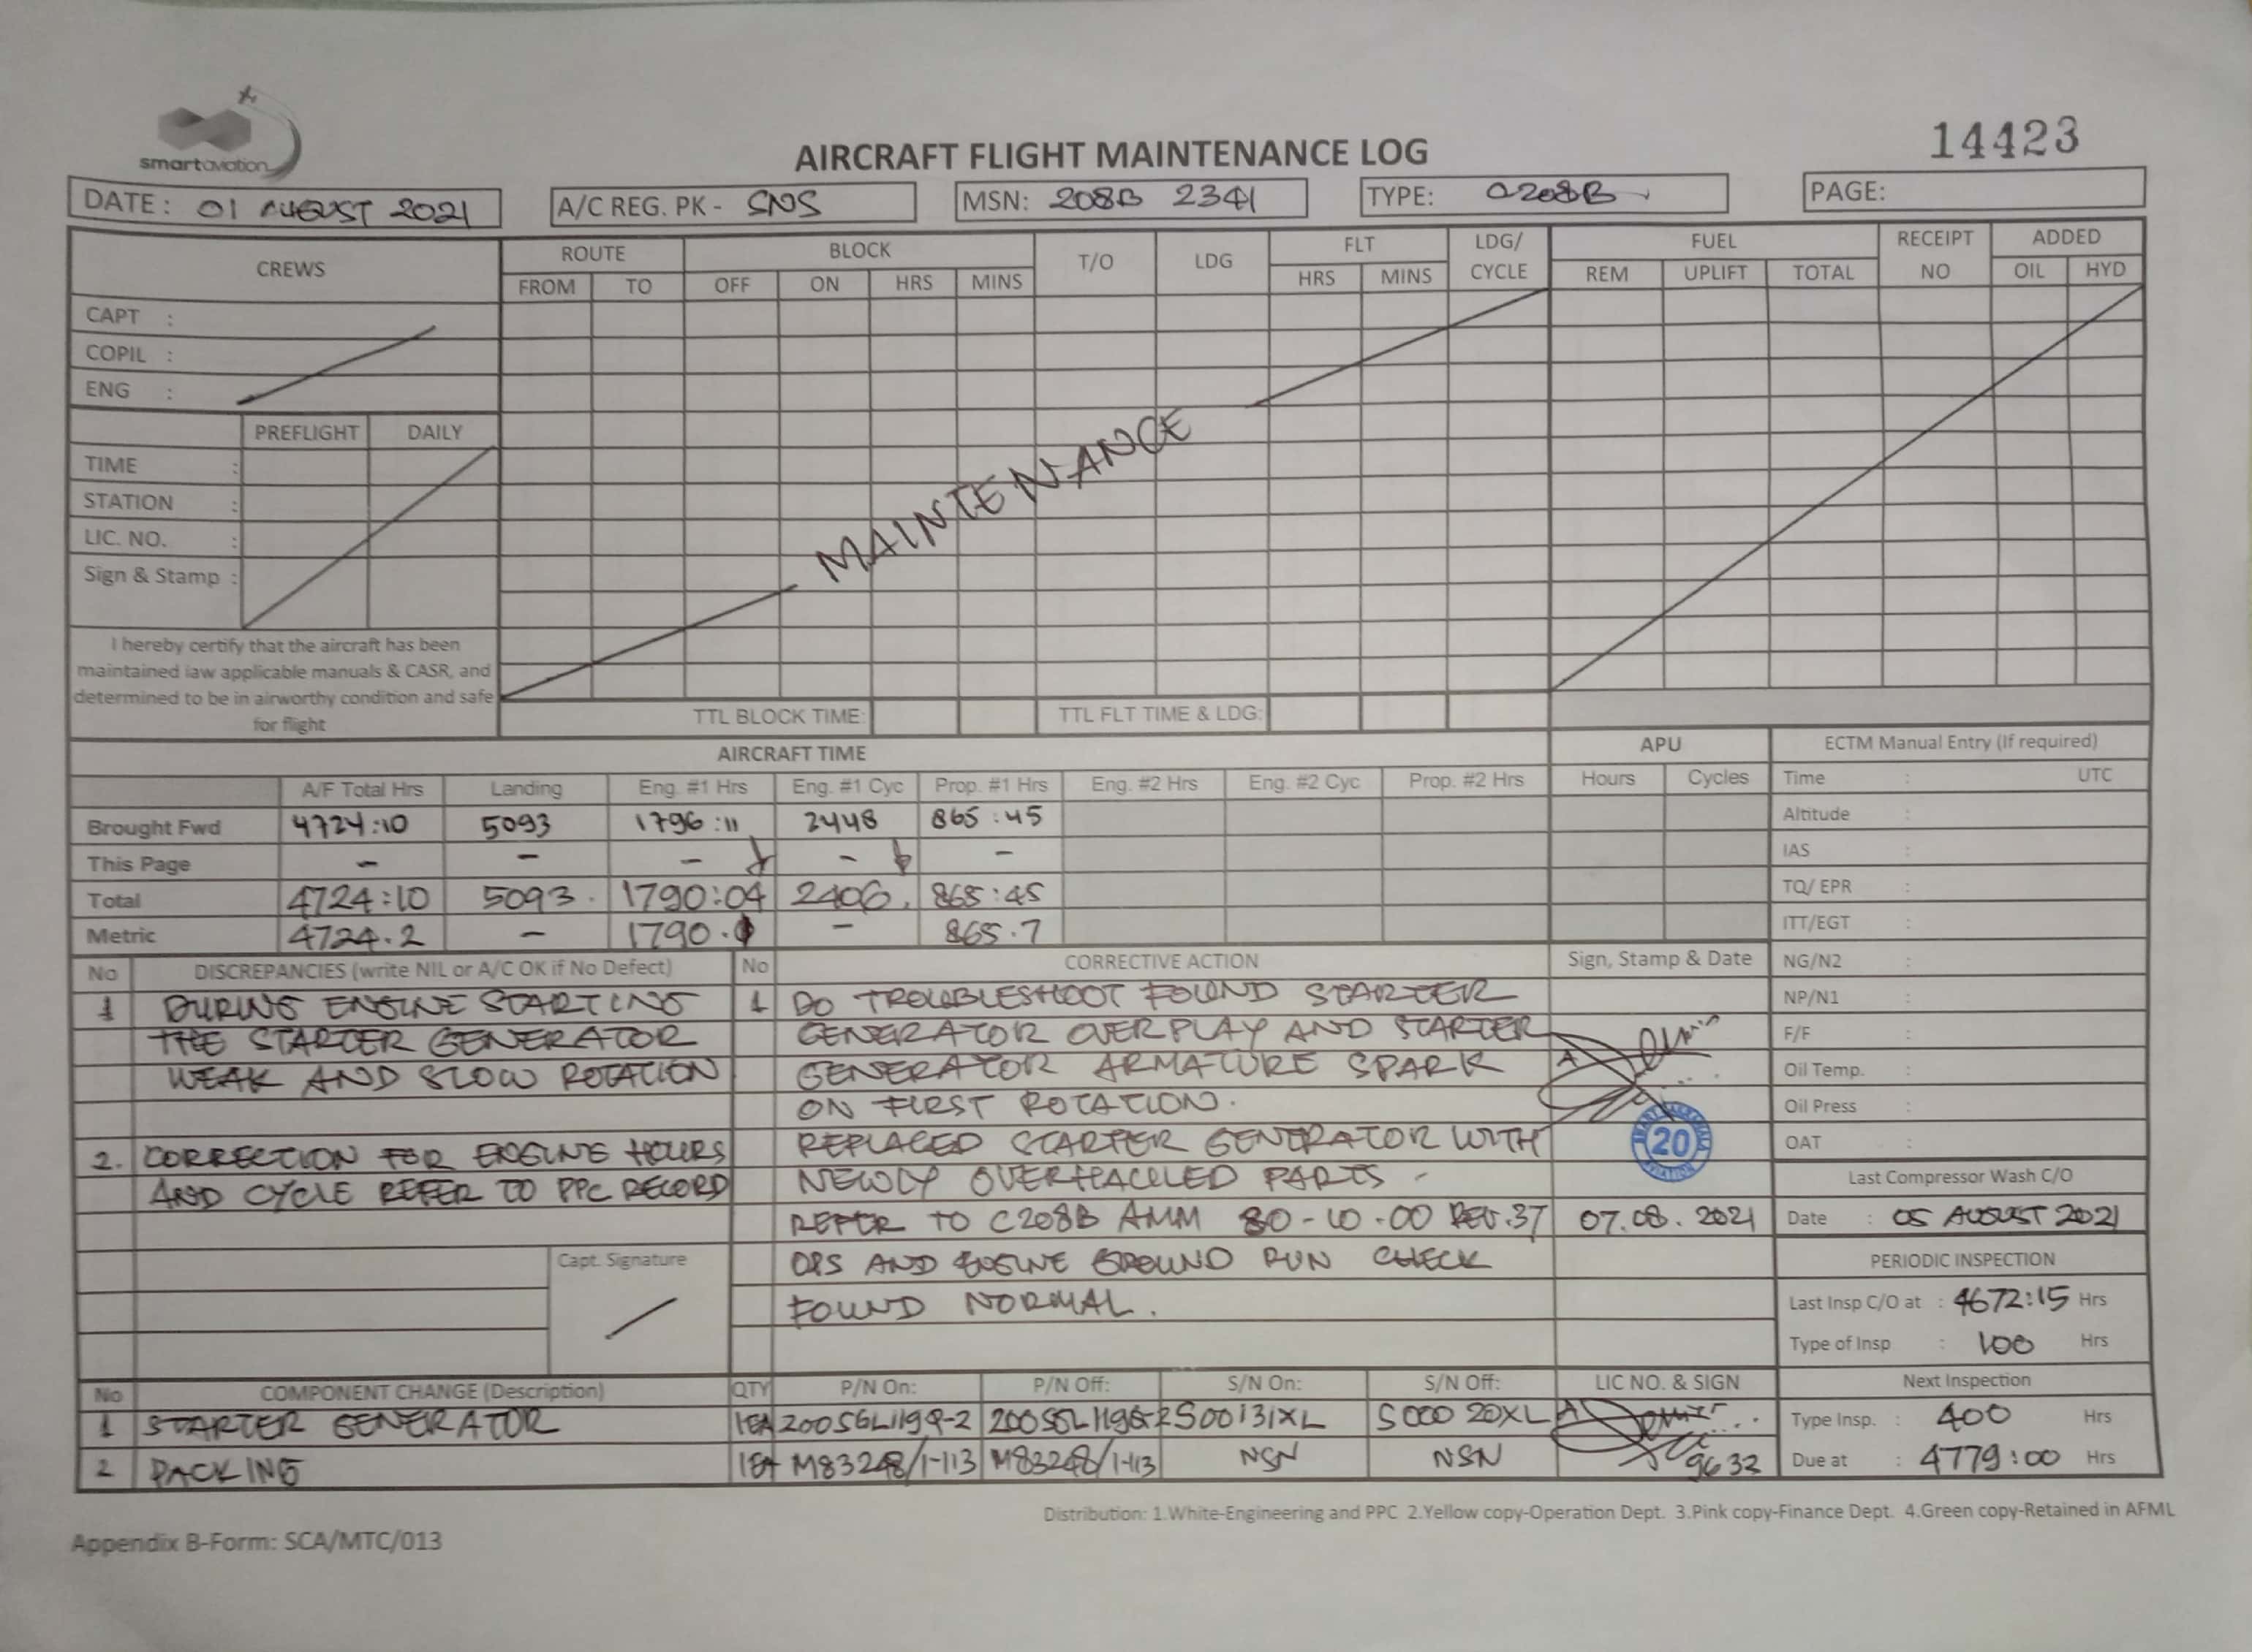 smartaviation
14423
AIRCRAFT FLIGHT MAINTENANCE LOG
DATE : 01 AUGUST 2021 A/C REG. PK - SNS MSN: 208B 2341 TYPE: C208B PAGE:
CREWS ROUTE BLOCK T/O LDG FLT LDG/ CYCLE FUEL RECEIPT NO ADDED
FROM TO OFF ON HRS MINS HRS MINS REM UPLIFT TOTAL OIL HYD
CAPT :
COPIL :
ENG :
PREFLIGHT DAILY
TIME :
STATION :
LIC. NO. :
Sign & Stamp :
MAINTENANCE
I hereby certify that the aircraft has been
maintained iaw applicable manuals & CASR, and
determined to be in airworthy condition and safe
for flight
TTL BLOCK TIME: TTL FLT TIME & LDG:
AIRCRAFT TIME APU ECTM Manual Entry (If required)
A/F Total Hrs Landing Eng. #1 Hrs Eng. #1 Cyc Prop. #1 Hrs Eng. #2 Hrs Eng. #2 Cyc Prop. #2 Hrs Hours Cycles Time : UTC
Brought Fwd 4724:10 5093 1796:11 2448 865:45 Altitude :
This Page - - - - - IAS :
Total 4724:10 5093. 1790:04 2406. 865:45 TQ/ EPR :
Metric 4724.2 - 1790. - 865.7 ITT/EGT :
No DISCREPANCIES (write NIL or A/C OK if No Defect) No CORRECTIVE ACTION Sign, Stamp & Date NG/N2 :
1 DURING ENGINE STARTING 1 DO TROUBLESHOOT FOUND STARTER NP/N1 :
THE STARTER GENERATOR GENERATOR OVERPLAY AND STARTER F/F :
WEAK AND SLOW ROTATION GENERATOR ARMATURE SPARK Oil Temp. :
ON FIRST ROTATION. Oil Press :
2. CORRECTION FOR ENGINE HOURS REPLACED STARTER GENERATOR WITH 20 OAT :
AND CYCLE REFER TO PPC RECORD NEWLY OVERHAULED PARTS - Last Compressor Wash C/O
REFER TO C208B AMM 80-10-00 REV.37 07.08.2021 Date : 05 AUGUST 2021
Capt. Signature OPS AND ENGINE GROUND RUN CHECK PERIODIC INSPECTION
FOUND NORMAL. Last Insp C/O at : 4672:15 Hrs
Type of Insp : 100 Hrs
No COMPONENT CHANGE (Description) QTY P/N On: P/N Off: S/N On: S/N Off: LIC NO. & SIGN Next Inspection
1 STARTER GENERATOR 1EA S00131XL S00020XL Type Insp. : 400 Hrs
2 PACKING 1EA M83248/1-113 M83248/1-113 NSN NSN 9633 Due at : 4779:00 Hrs
Distribution: 1.White-Engineering and PPC 2.Yellow copy-Operation Dept. 3.Pink copy-Finance Dept. 4.Green copy-Retained in AFML
Appendix B-Form: SCA/MTC/013